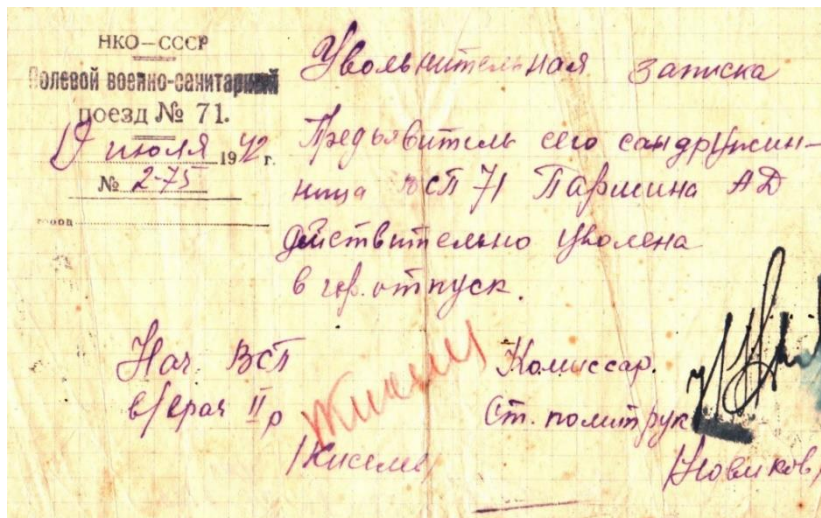 НКО–СССР
Полевой военно-санитарный
поезд № 71.
июля 1942 г.
№ 2-75
Увольнительная записка
Предъявитель сего сандружин-
ница ВСП 71 Паршина АД
действительно уволена
в гор. отпуск.
Нач ВСП
в/врач II р
/Киселев/
Комиссар.
Ст. политрук
/Новиков/